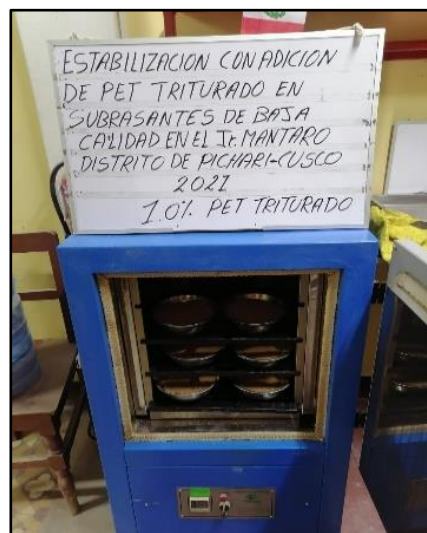 ESTABILIZACION CON ADICION
DE PET TRITURADO EN
SUBRASANTES DE BAJA
CALIDAD EN EL Jr. MANTARO
DISTRITO DE PICHARI-CUSCO
2021
1.0% PET TRITURADO